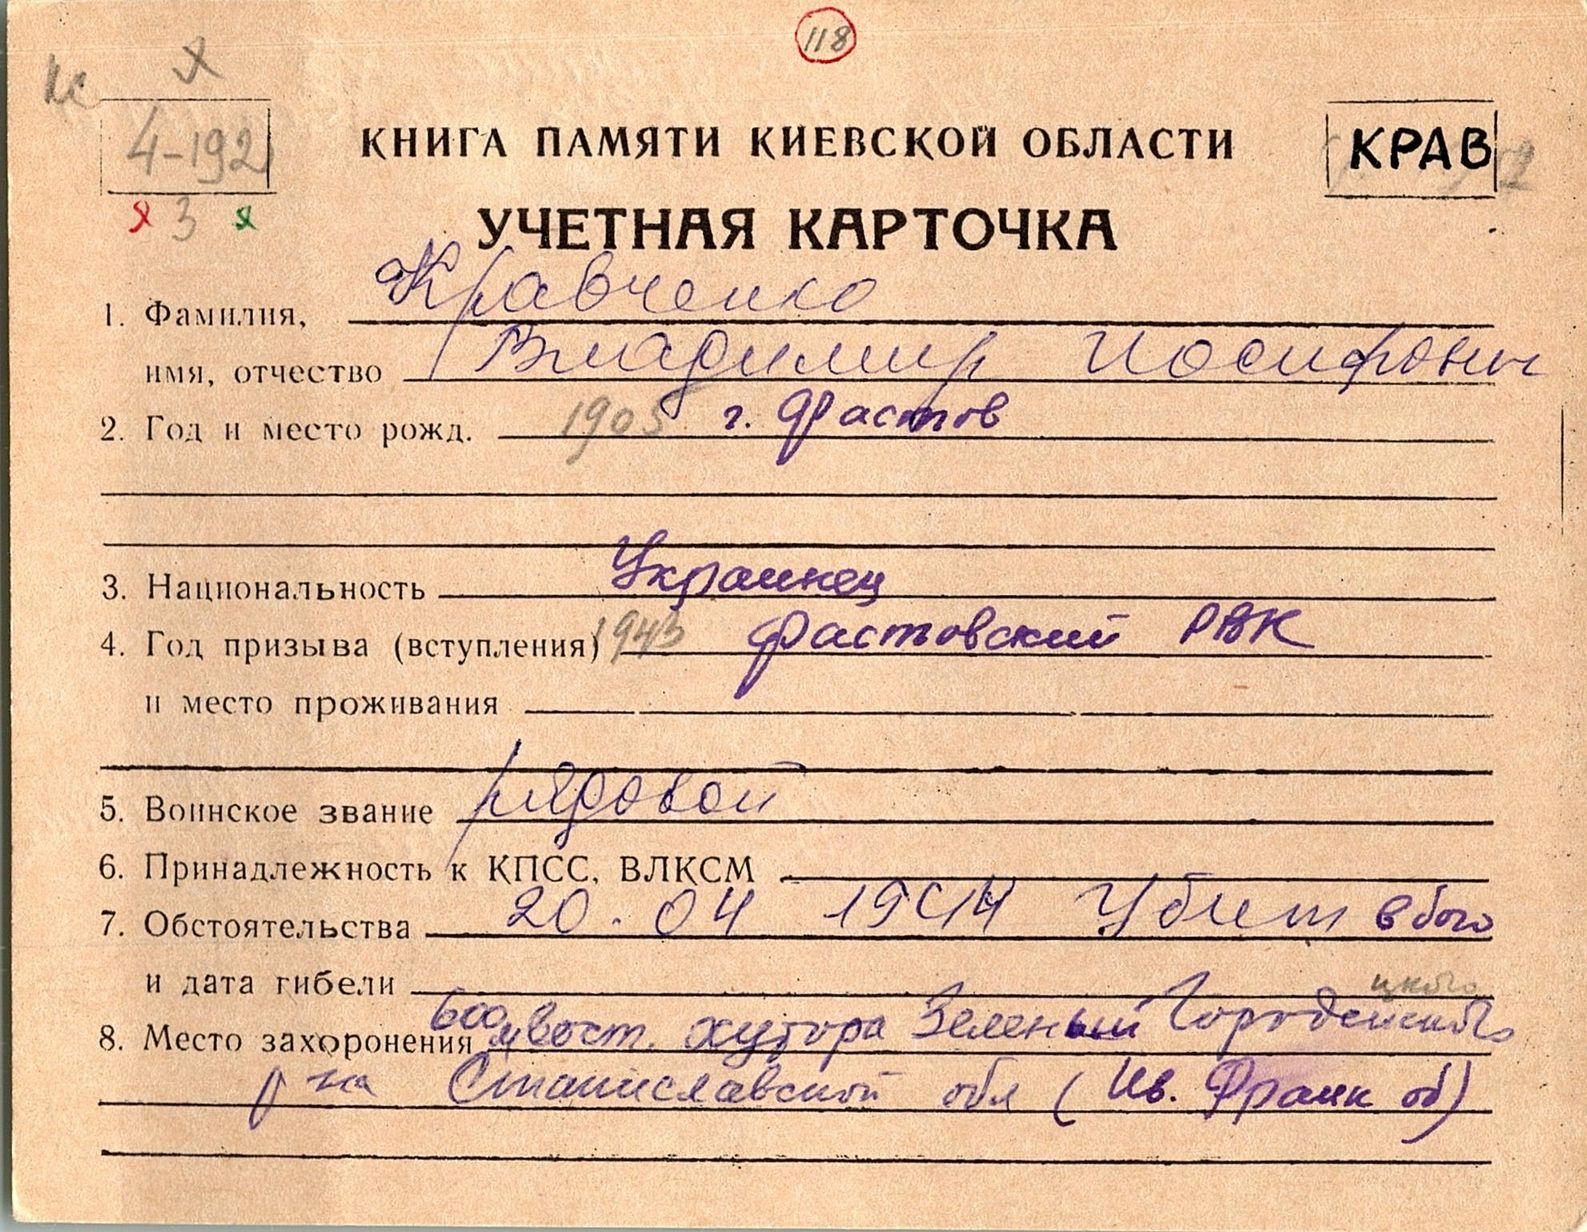 118
4-192
КНИГА ПАМЯТИ КИЕВСКОЙ ОБЛАСТИ
КРАВ
3
УЧЕТНАЯ КАРТОЧКА
1. Фамилия, Кравченко
имя, отчество Владимир Иосифович
2. Год и место рожд. 1905 г. Фастов
3. Национальность Украинец
4. Год призыва (вступления) 1943 Фастовский РВК
и место проживания
5. Воинское звание рядовой
6. Принадлежность к КПСС, ВЛКСМ
7. Обстоятельства 20.04 1944 Убит в бою
и дата гибели
цкого
8. Место захоронения 600 м вост. хутора Зеленый Городенского
р-на Станиславской обл (Ив. Франк об)